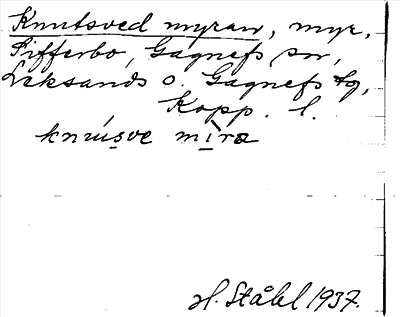 Knutsved myran, myr,
Sifferbo, Gagnefs sn,
Leksands o. Gagnefs tg,
Kopp. l.
knúsve mìra
H. Ståhl 1937.